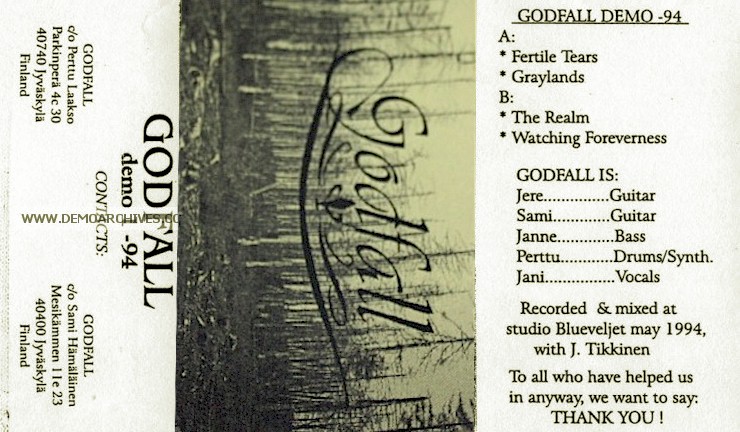 GODFALL
c/o Perttu Laakso
Parkinperä 4c 30
40740 Jyväskylä
Finland
CONTACTS:
GODFALL
c/o Sami Hämäläinen
Mesikämmen 11e 23
40400 Jyväskylä
Finland
GODFALL
demo -94
WWW.DEMOARCHIVES.CC
Godfall
GODFALL DEMO -94
A:
* Fertile Tears
* Graylands
B:
* The Realm
* Watching Foreverness
GODFALL IS:
Jere...............Guitar
Sami..............Guitar
Janne.............Bass
Perttu............Drums/Synth.
Jani................Vocals
Recorded & mixed at
studio Blueveljet may 1994,
with J. Tikkinen
To all who have helped us
in anyway, we want to say:
THANK YOU !